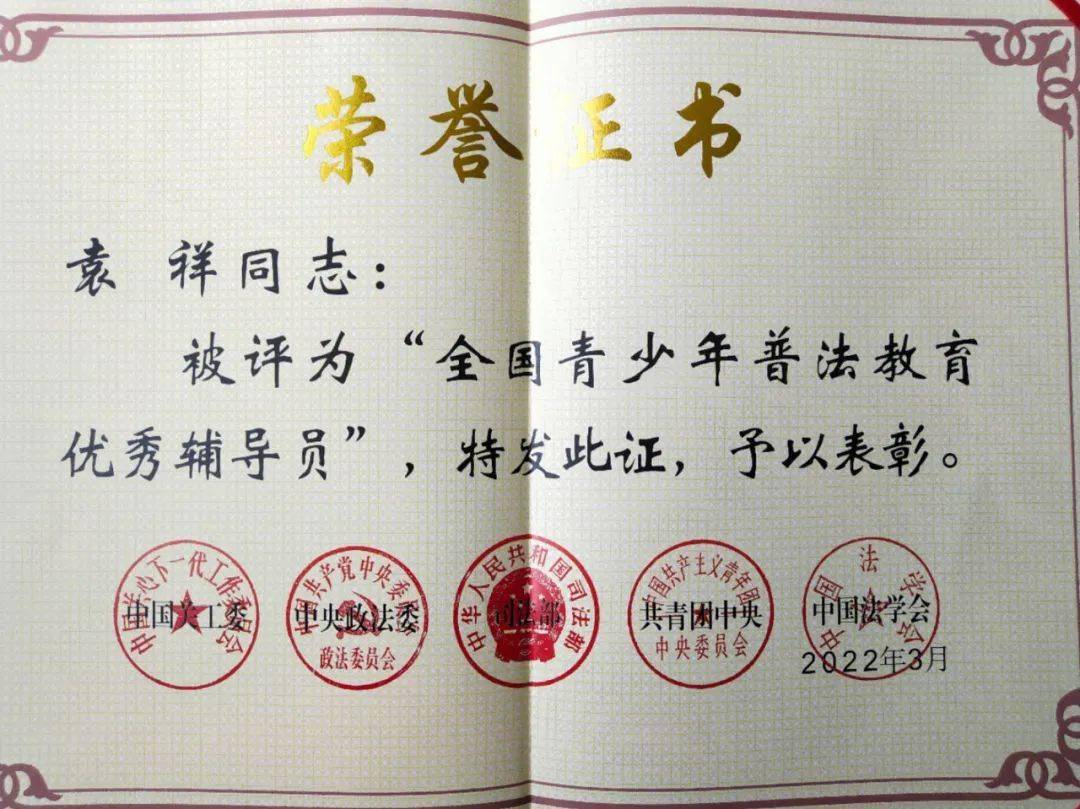 荣誉证书
袁 祥同志：
被评为“全国青少年普法教育
优秀辅导员”，特发此证，予以表彰。
中国关心下一代工作委员会
中国关工委
中国共产党中央委员会
中央政法委
政法委员会
中华人民共和国司法部
司法部
中国共产主义青年团
共青团中央
中央委员会
中国法学会
中国法学会
2022年3月